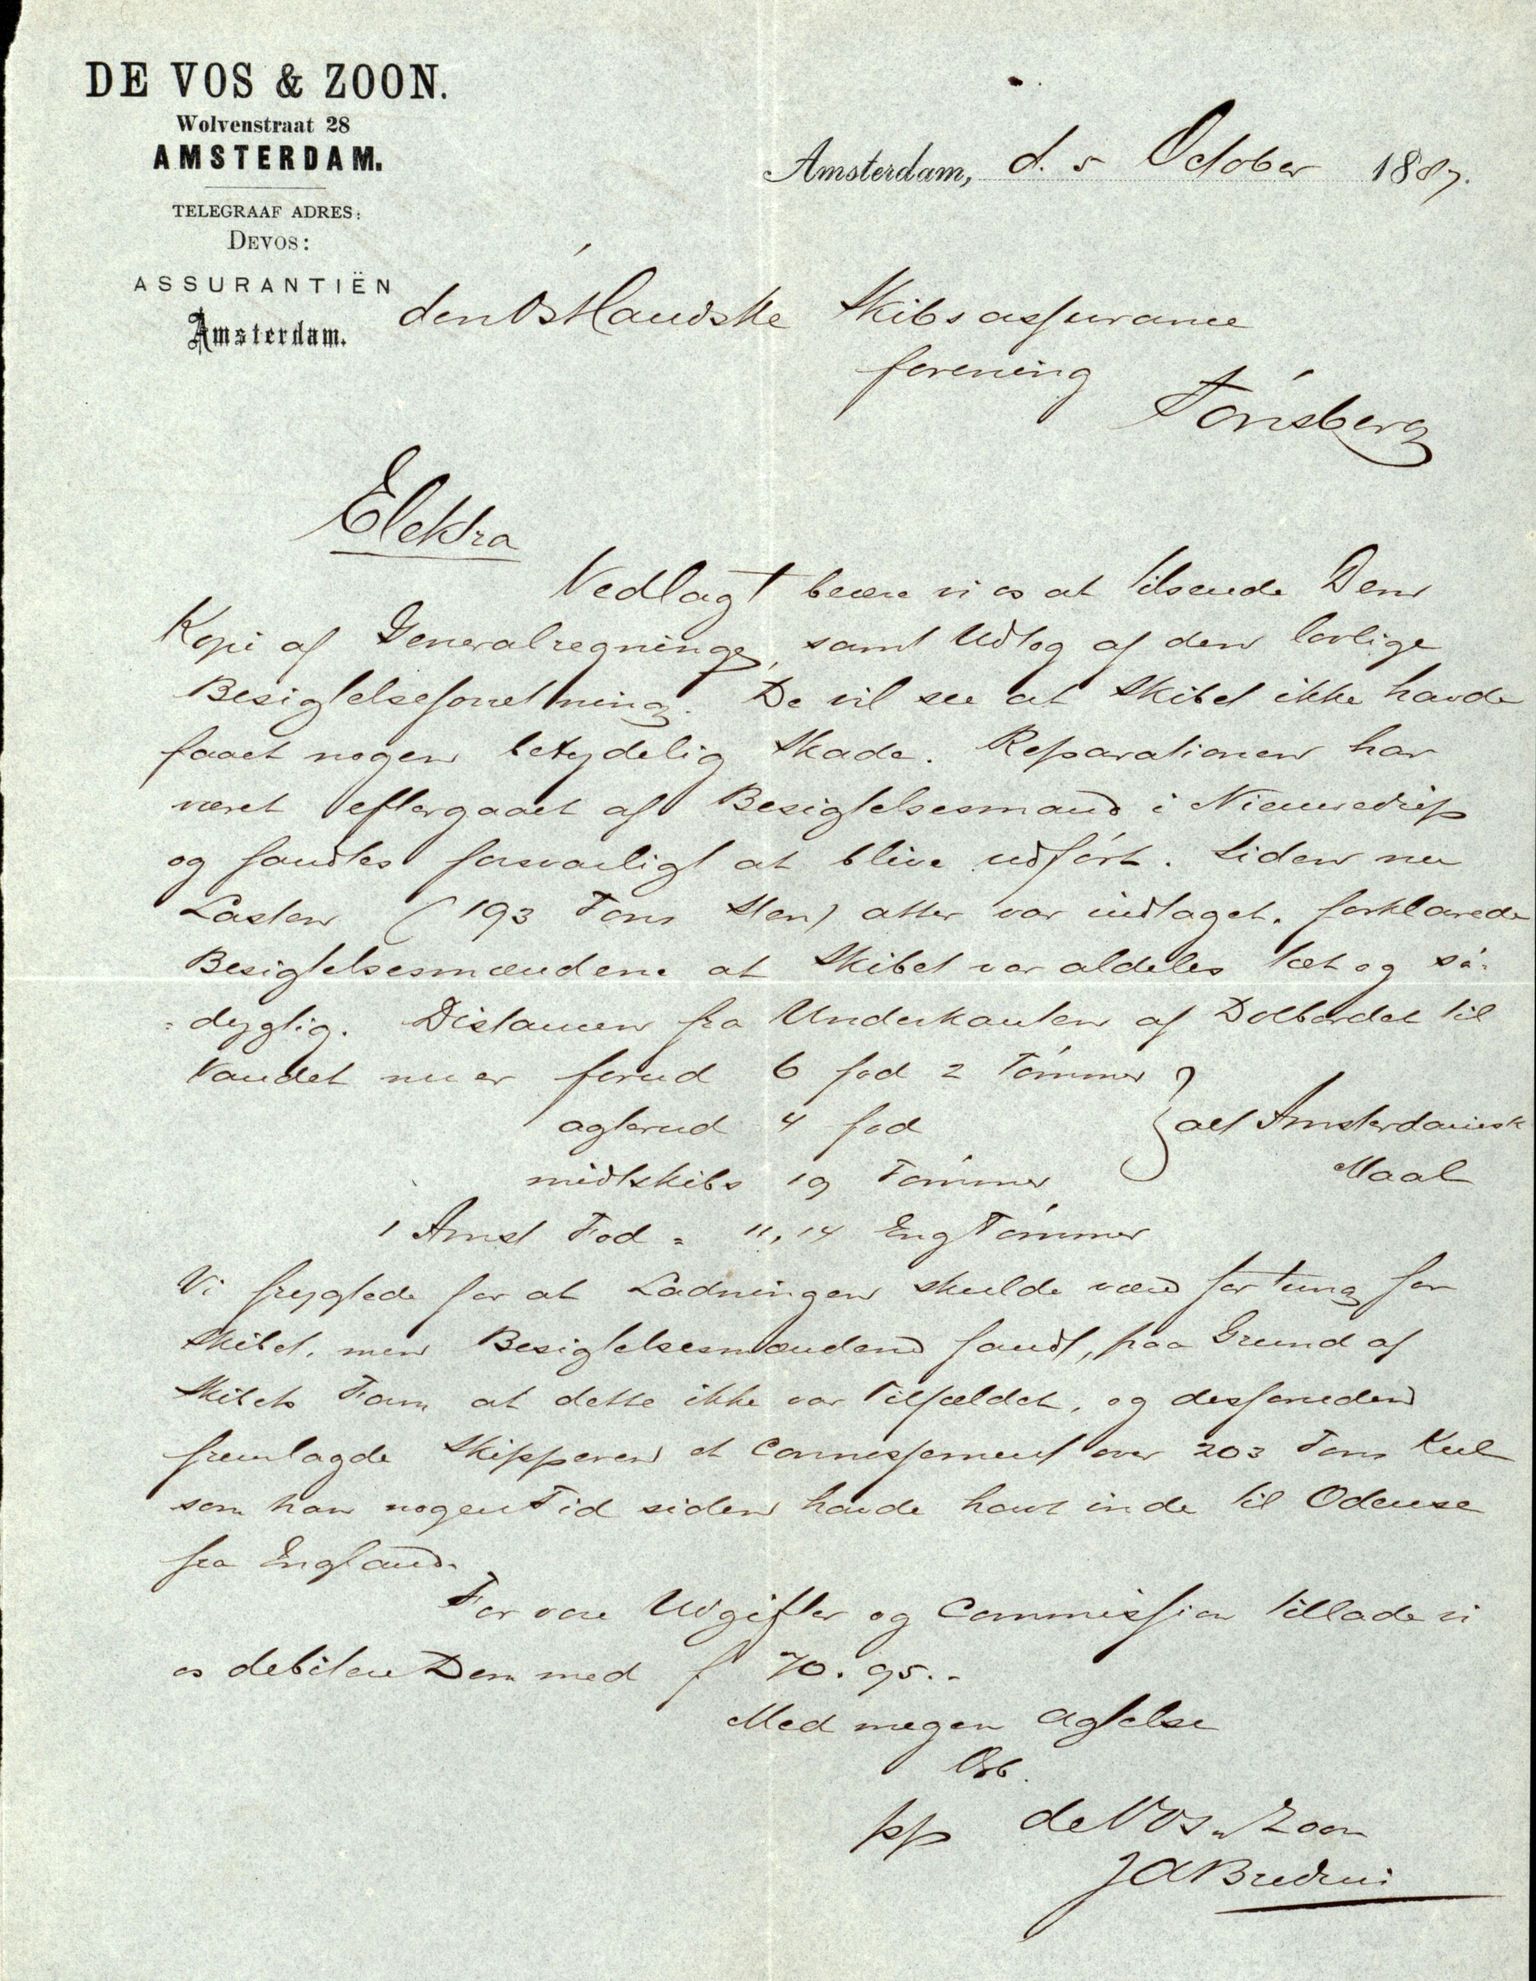 DE VOS & ZOON.
Wolvenstraat 28
AMSTERDAM.
TELEGRAAF ADRES:
DEVOS:
ASSURANTIËN
Amsterdam.
Amsterdam, d. 5 October 1887.
den Østlandske Skibsassurance
forening
Tönsberg
Elektra
Vedlagt beære vi os at tilsende Dem
Kopi af Generalregninge, samt Udtog af den lovlige
Besigtelseforretning. De vil see at Skibet ikke havde
faaet nogen betydelig Skade. Reparationen har
været eftergaaet af Besigtelsesmænd i Nieuwediep
og fandtes forsvarligt at blive udført. Siden nu
Lasten (193 Tons Sten) atter var indtaget, forklarede
Besigtelsesmændene at Skibet var aldeles tæt og sö-
=dygtig. Distancen fra Underkanten af Dolbordet til
Vandet nu er forud 6 fod 2 Tömmer
agterud 4 fod } alt Amsterdamsk
midtskibs 19 Tömmer Maal
1 Amst Fod = 11,14 Eng Tömmer
Vi frygtede for at Ladningen skulde være for tung for
Skibet, men Besigtelsesmændene fandt, paa Grund af
Skibets Form at dette ikke var Tilfældet, og desforuden
fremlagde Skipperen et Connossement over 203 Tons Kul
som han nogen Tid siden havde havt inde til Odense
fra England.
For vore Udgifter og Commission tillade vi
os debitere Dem med f 70.95.-
Med megen Agtelse
pp de Vos & Zoon